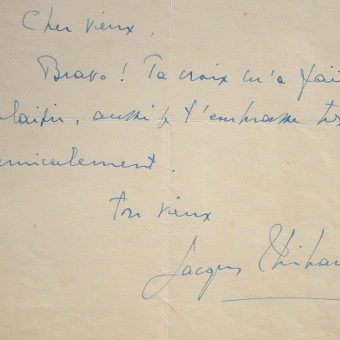 Cher vieux,
Bravo ! Ta croix m'a fai
laisir, aussi je t'embrasse
amicalement.
Ton vieux
Jacques Thibau